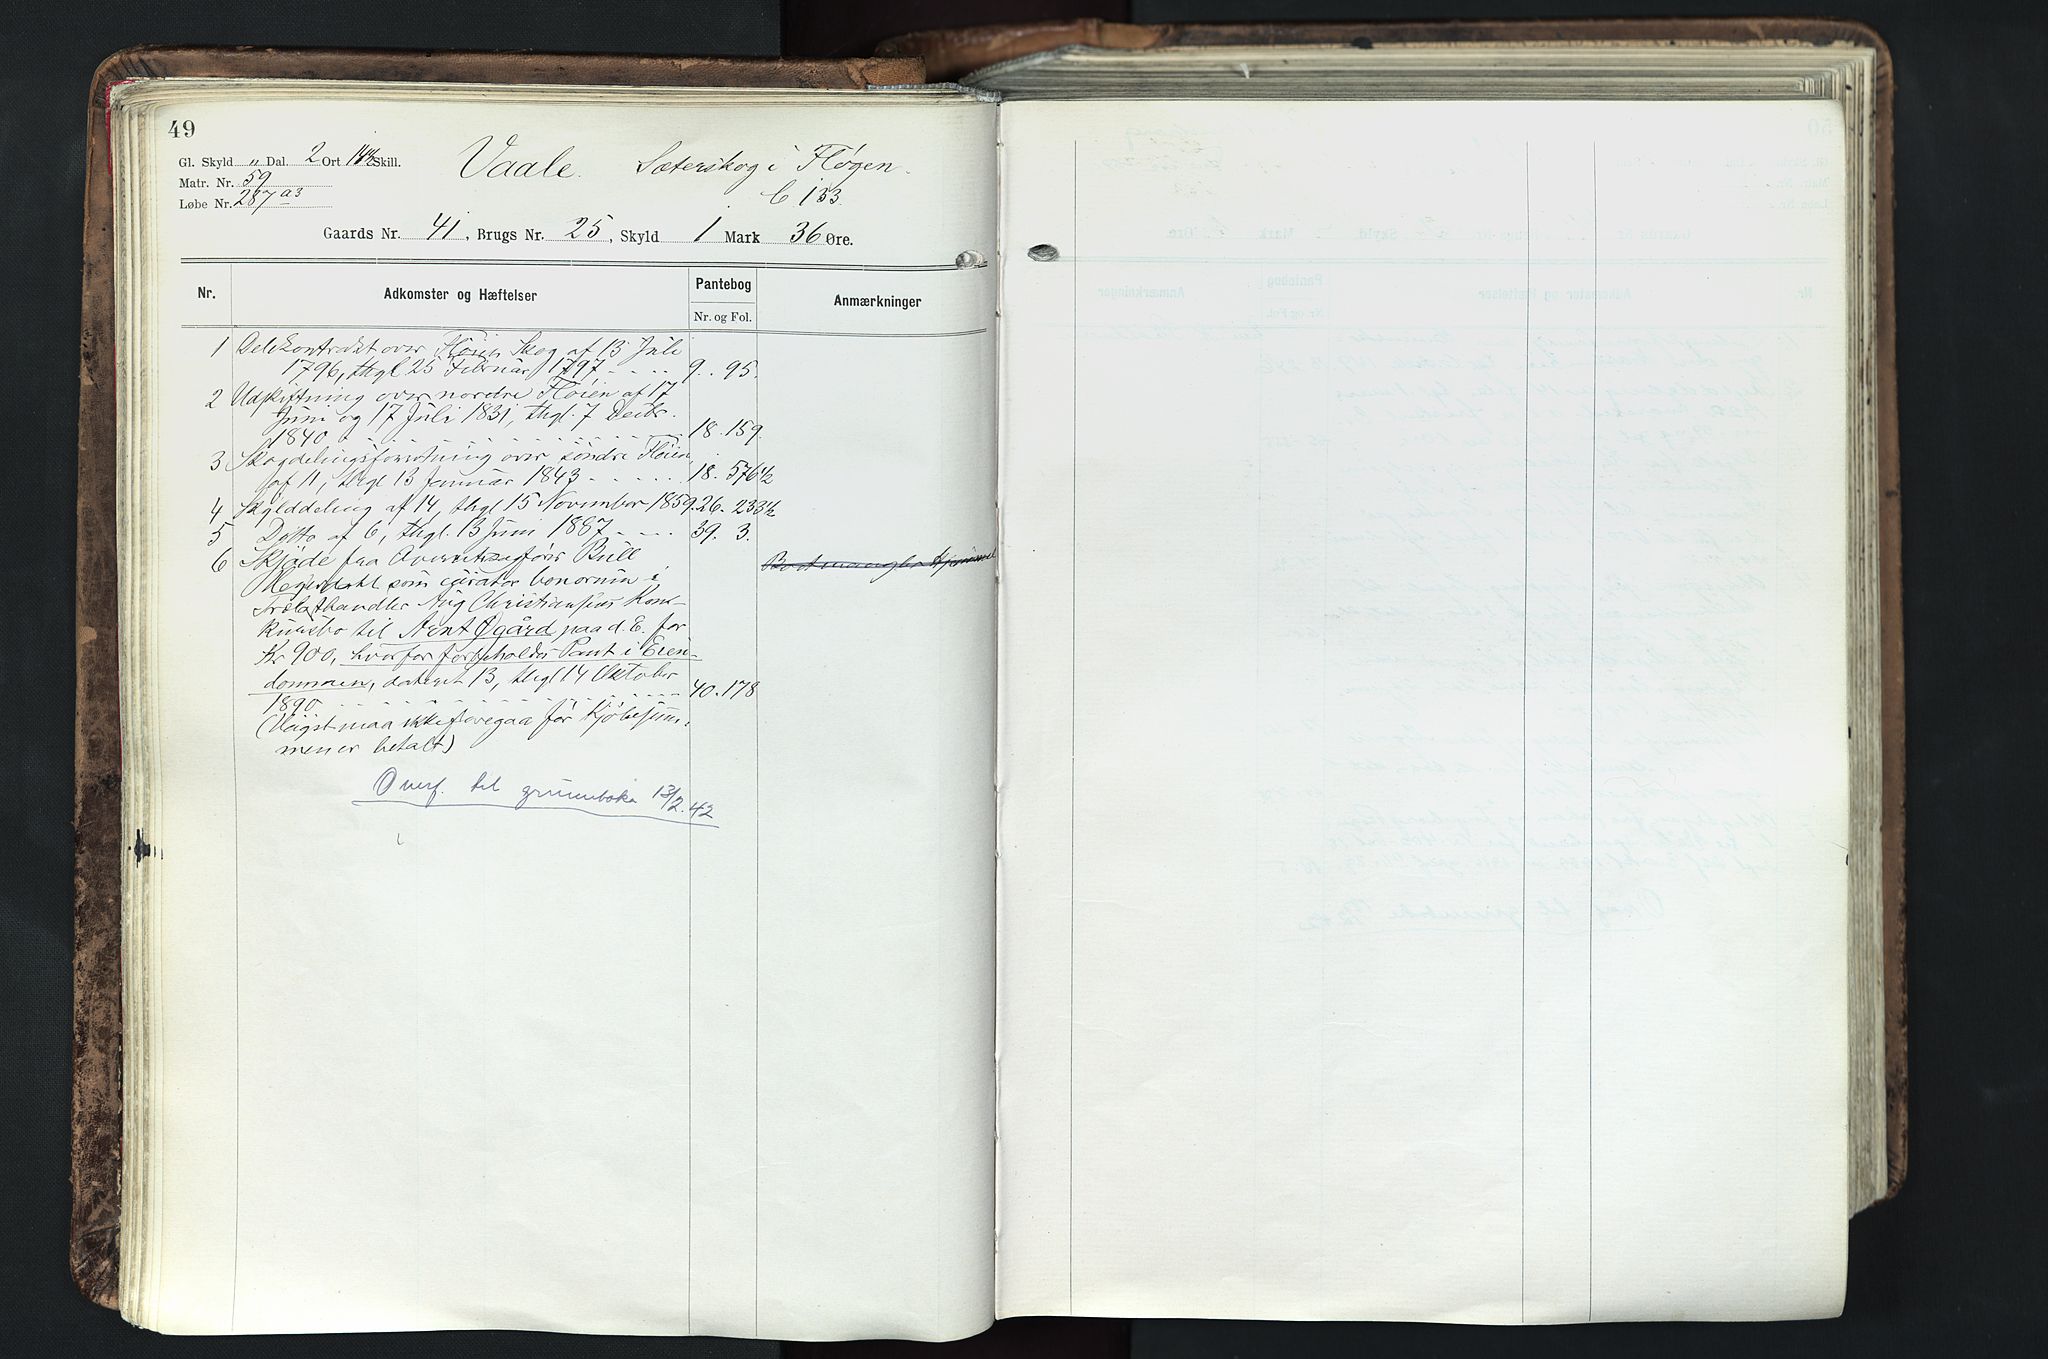 49
Gl. Skyld " Dal. 2 Ort Skill.
Vaale. Sæterskog i Fløgen.
Matr. Nr. 59
Løbe Nr. 287 a3
C 133.
Gaards Nr. 41, Brugs Nr. 25, Skyld 1 Mark 36 Øre.
Nr. Adkomster og Hæftelser Pantebog Anmærkninger
Nr. og Fol.
1 Delekontrakt over Fløien Skog af 13 Juli
1796, thgl 25 Februar 1797 9. 95.
2 Udskiftning over nordre Fløien af 17
Juni og 17 Juli 1831, thgl. 7 Decbr.
1840 18. 159.
3 Skogdelingsforretning over søndre Fløien
af 11, thgl 13 Januar 1843 18. 576½
4 Skylddeling af 14, thgl 15 November 1859. 26. 233½
5 Ditto af 6, thgl. 13 Juni 1887 39. 3.
6 Skjøde fra Overretssagfører Bull
som curator bonorum i
Trælasthandler Aug Christiansens Kon-
kursbo til Arnt Øgård paa d. E. for
Kr 900, hvorfor forbeholdes Pant i Eien-
dommen, dateret 13, thgl 14 Oktober
1890 40. 178
(Hugst maa ikke foregaa før Kjøbesum-
men er betalt)
Overf. til grunnboka 13/2.42